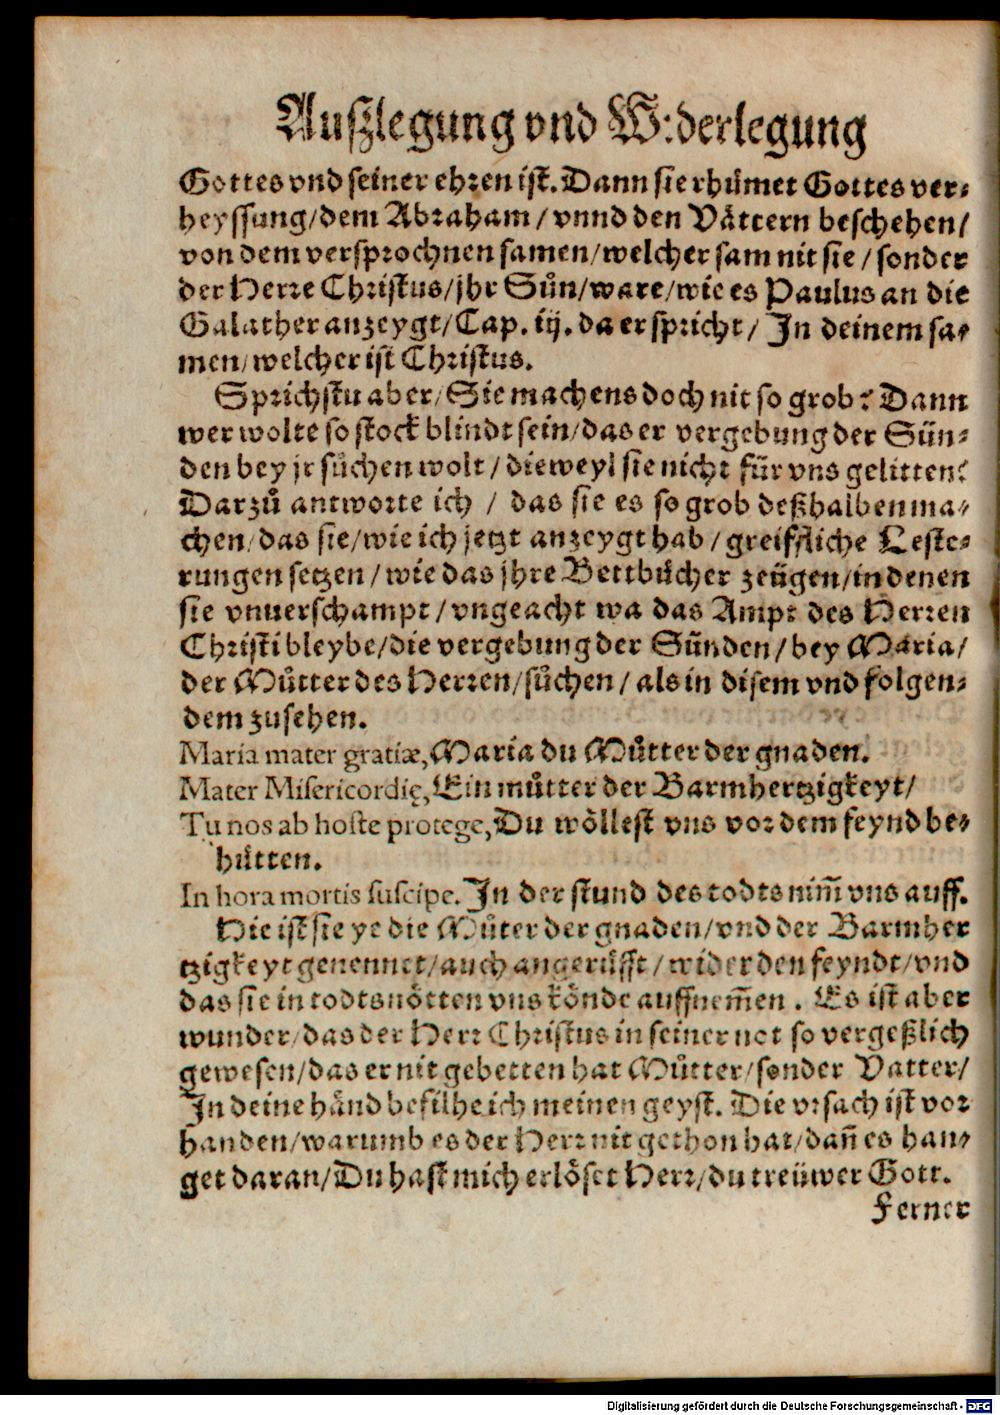 Auſzlegung vnd W:derlegung
Gottes vnd ſeiner ehren iſt. Dann ſie rhuͤmet Gottes ver⸗
heyſſung/dem Abraham/vnnd den Vaͤttern beſchehen/
von dem verſprochnen ſamen/welcher ſam nit ſie/ſonder
der Herre Chriſtus/jhr Suͤn/ware/wie es Paulus an die
Galather anzeygt/Cap. iij. da er ſpricht/ In deinem ſa⸗
men/welcher iſt Chriſtus.
Sprichſtu aber/Sie machens doch nit ſo grob? Dann
wer wolte ſo ſtock blindt ſein/das er vergebung der Suͤn⸗
den bey jr ſuͤchen wolt/dieweyl ſie nicht fuͤr vns gelitten?
Darzuͦ antworte ich / das ſie es ſo grob deßhalben ma⸗
chen/das ſie/wie ich jetzt anzeygt hab/greiffliche Leſte⸗
rungen ſetzen/wie das jhre Bettbuͤcher zeuͤgen/in denen
ſie vnuerſchampt/vngeacht wa das Ampt des Herren
Chriſti bleybe/die vergebung der Suͤnden/bey Maria/
der Muͦtter des Herren/ſuͤchen/als in diſem vnd folgen⸗
dem zuſehen.
Maria mater gratiæ, Maria du Muͦtter der gnaden.
Mater Miſericordię, Ein muͦtter der Barmhertzigkeyt/
Tu nos ab hoſte protege, Du woͤlleſt vns vor dem feynd be⸗
huͤtten.
In hora mortis ſuſcipe. In der ſtund des todts nim̃ vns auff.
Hie iſt ſie ye die Muͦter der gnaden/vnd der Barmher
tzigkeyt genennet/auch angeruͤfft/wider den feyndt/vnd
das ſie in todtsnoͤtten vns koͤnde auffnem̃en. Es iſt aber
wunder/das der Herr Chriſtus in ſeiner not ſo vergeßlich
geweſen/das er nit gebetten hat Muͦtter/ſonder Vatter/
In deine haͤnd befilhe ich meinen geyſt. Die vrſach iſt vor
handen/warumb es der Herr nit gethon hat/dañ es han⸗
get daran/Du haſt mich erloͤſet Herr/du treuͤwer Gott.
Ferner
Digitalisierung gefördert durch die Deutsche Forschungsgemeinschaft - DFG